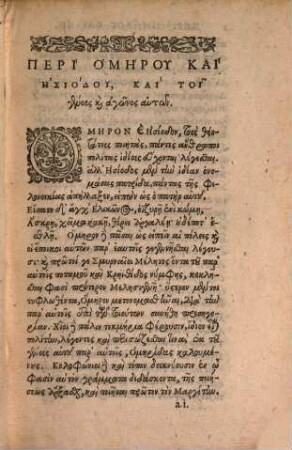 ΠΕΡΙ ΟΜΗΡΟΥ ΚΑΙ
ΗΣΙΟΔΟΥ, ΚΑΙ ΤΟΥ
γένους καὶ ἀγῶνος αὐτῶν.
ΟΜΗΡΟΝ καὶ Ἡσίοδον, τοὺς θειο-
τάτους ποιητὰς, πάντες ἄνθρωποι
πολίτας ἰδίους εὔχονται λέγεσθαι.
ἀλλ' Ἡσίοδος μὲν τὴν ἰδίαν ὀνο-
μάσας πατρίδα, πάντας τῆς φι-
λονεικίας ἀπήλλαξεν, εἰπὼν ὡς ὁ πατὴρ αὐτοῦ,
Εἵσατο δ' ἄγχ' Ἑλικῶνος, ὀϊζυρῇ ἐνὶ κώμῃ,
Ἄσκρῃ, χεῖμα κακῇ, θέρει ἀργαλέῃ οὐδέποτ'
ἐσθλῇ. Ὅμηρον δὲ πᾶσαι ὡς εἰπεῖν αἱ πόλεις καὶ
οἱ ἔποικοι αὐτῶν παρ' ἑαυτοῖς γεγενῆσθαι λέγουσι.
καὶ πρῶτοί γε Σμυρναῖοι Μέλητος ὄντα τοῦ παρ'
αὐτοῖς ποταμοῦ καὶ Κρηθηΐδος νύμφης, κεκλῆ-
σθαί φασι πρότερον Μελησιγενῆ· ὕστερον μέντοι
τυφλωθέντα, Ὅμηρον μετονομασθῆναι, διὰ τὴν
παρ' αὐτοῖς ἐπὶ τῶν τοιούτων συνήθη προση-
γορίαν. Χῖοι δὲ πάλιν τεκμήρια φέρουσιν, ἴδιον εἶναι
πολίτην, λέγοντες καὶ περισώζεσθαί τινας ἐκ τοῦ
γένους αὐτοῦ παρ' αὐτοῖς, Ὁμηρίδας καλουμέ-
νους. Κολοφώνιοι δὲ καὶ τόπον δεικνύουσιν ἐν ᾧ
φασὶν αὐτὸν γράμματα διδάσκοντα, τῆς ποιή-
σεως ἄρξασθαι, καὶ ποιῆσαι πρῶτον τὸν Μαργίτην.
a.i.